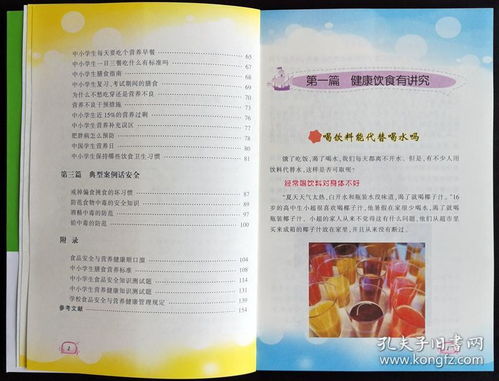 中小学生每天要吃个营养早餐 65
中小学生一日三餐吃什么有标准吗 67
中小学生膳食指南 68
中小学生复习、考试期间的膳食 70
为什么不愁吃穿还是营养不良 71
营养不良干预措施 74
中小学生近15%的营养过剩 75
中小学生营养补充误区 77
肥胖病怎么预防 78
中国学生营养日 80
中小学生保持哪些饮食卫生习惯 81
第三篇 典型案例话安全
戒掉偏食挑食的坏习惯
防范食物中毒的安全知识
酒精中毒的防范
铅中毒的防范 100
附录
食品安全与营养健康顺口溜 104
中小学生膳食营养标准 109
中小学生食品安全知识测试题 114
中小学生营养健康知识测试题 131
学校食品安全与营养健康管理规定 139
参考文献 154
2
第一篇 健康饮食有讲究
喝饮料能代替喝水吗
饿了吃饭，渴了喝水，我们每天都离不开水。但是，有不少人用
饮料代替水，这样是否可取呢？
经常喝饮料对身体不好
“夏天天气太热，白开水和瓶装水没味道，渴了就喝椰子汁。”16
岁的高中生小超很喜欢喝椰子汁，他暑假在家很少喝水，渴了就喝
瓶装椰子汁。小超的家人从来不觉得这有什么问题，他们从超市里
买来成箱的椰子汁放在家里，并且从来没有断过。
孔夫子旧书网
www.kongfz.com